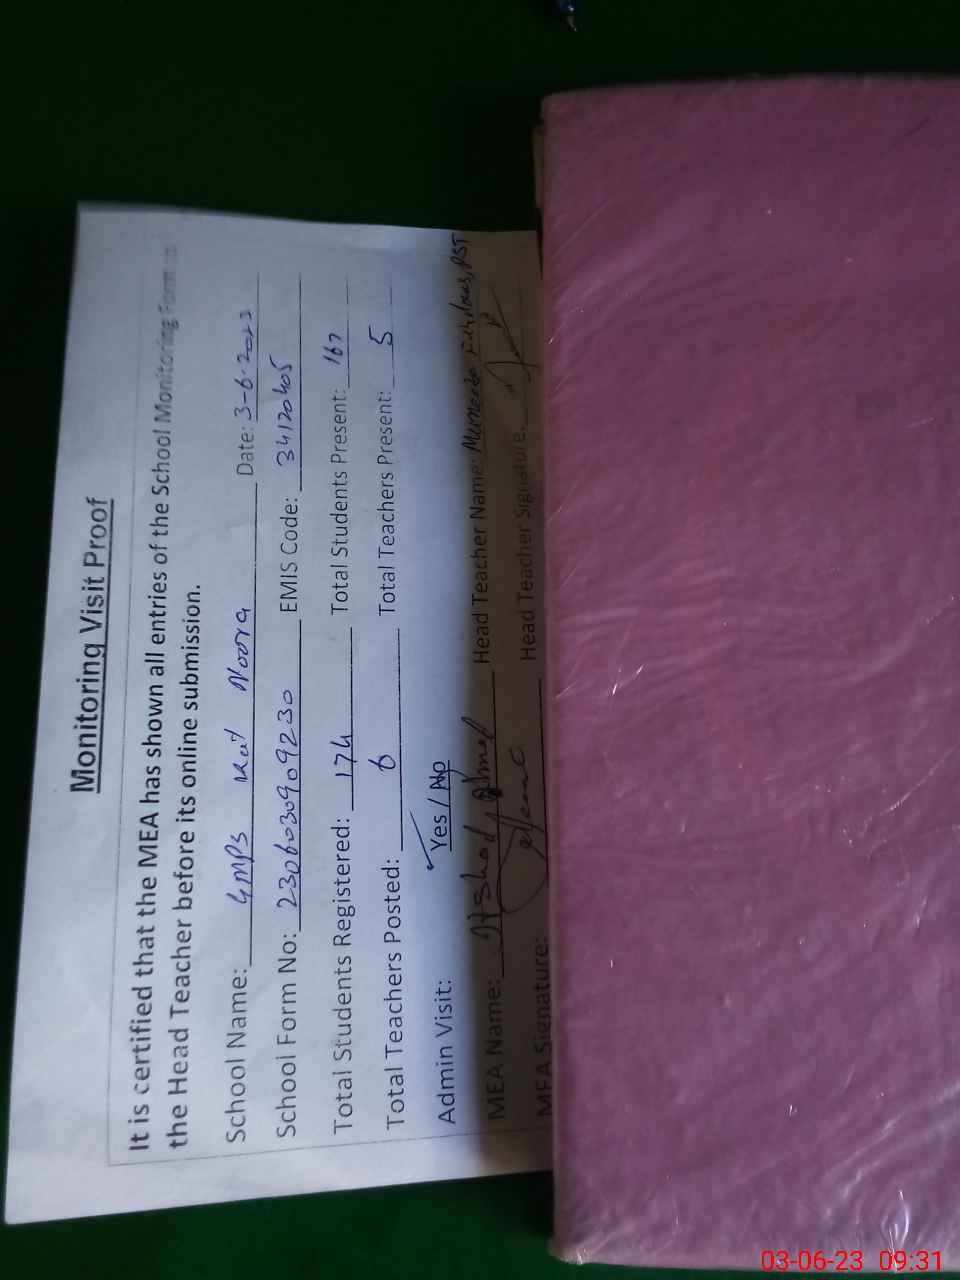 Monitoring Visit Proof
It is certified that the MEA has shown all entries of the School Monitoring Form to
the Head Teacher before its online submission.
School Name: GMPS Kot Noora Date: 3-6-2023
School Form No: 2306030909230 EMIS Code: 34120405
Total Students Registered: 174 Total Students Present: 167
Total Teachers Posted: 6 Total Teachers Present: 5
Admin Visit: Yes / No
MEA Name: Irshad Ahmad Head Teacher Name: Firdous, PST
MEA Signature: Head Teacher Signature:
03-06-23 09:31